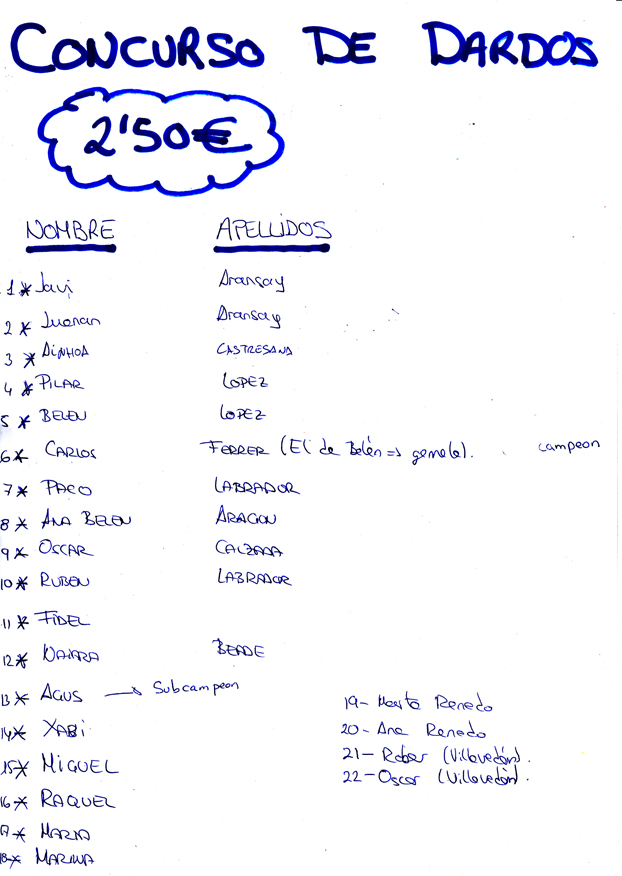 CONCURSO DE DARDOS
2'50€
NOMBRE APELLIDOS
1 * Javi Aransay
2 * Juanan Aransay
3 * AINHOA CASTRESANA
4 * PILAR LOPEZ
5 * BELEN LOPEZ
6 * CARLOS FERRER (El de Belén => geme(e). campeon
7 * PACO LABRADOR
8 * ANA BELEN ARAGON
9 * OSCAR CALZADA
10 * RUBEN LABRADOR
11 * FIDEL
12 * NAIARA BEADE
13 * AGUS → Subcampeon
14 * XABI
15 * MIGUEL
16 * RAQUEL
17 * MARIA
18 * MARINA
19- Marta Renedo
20- Ana Renedo
21- Rober (Villavedón).
22- Oscar (Villavedón).